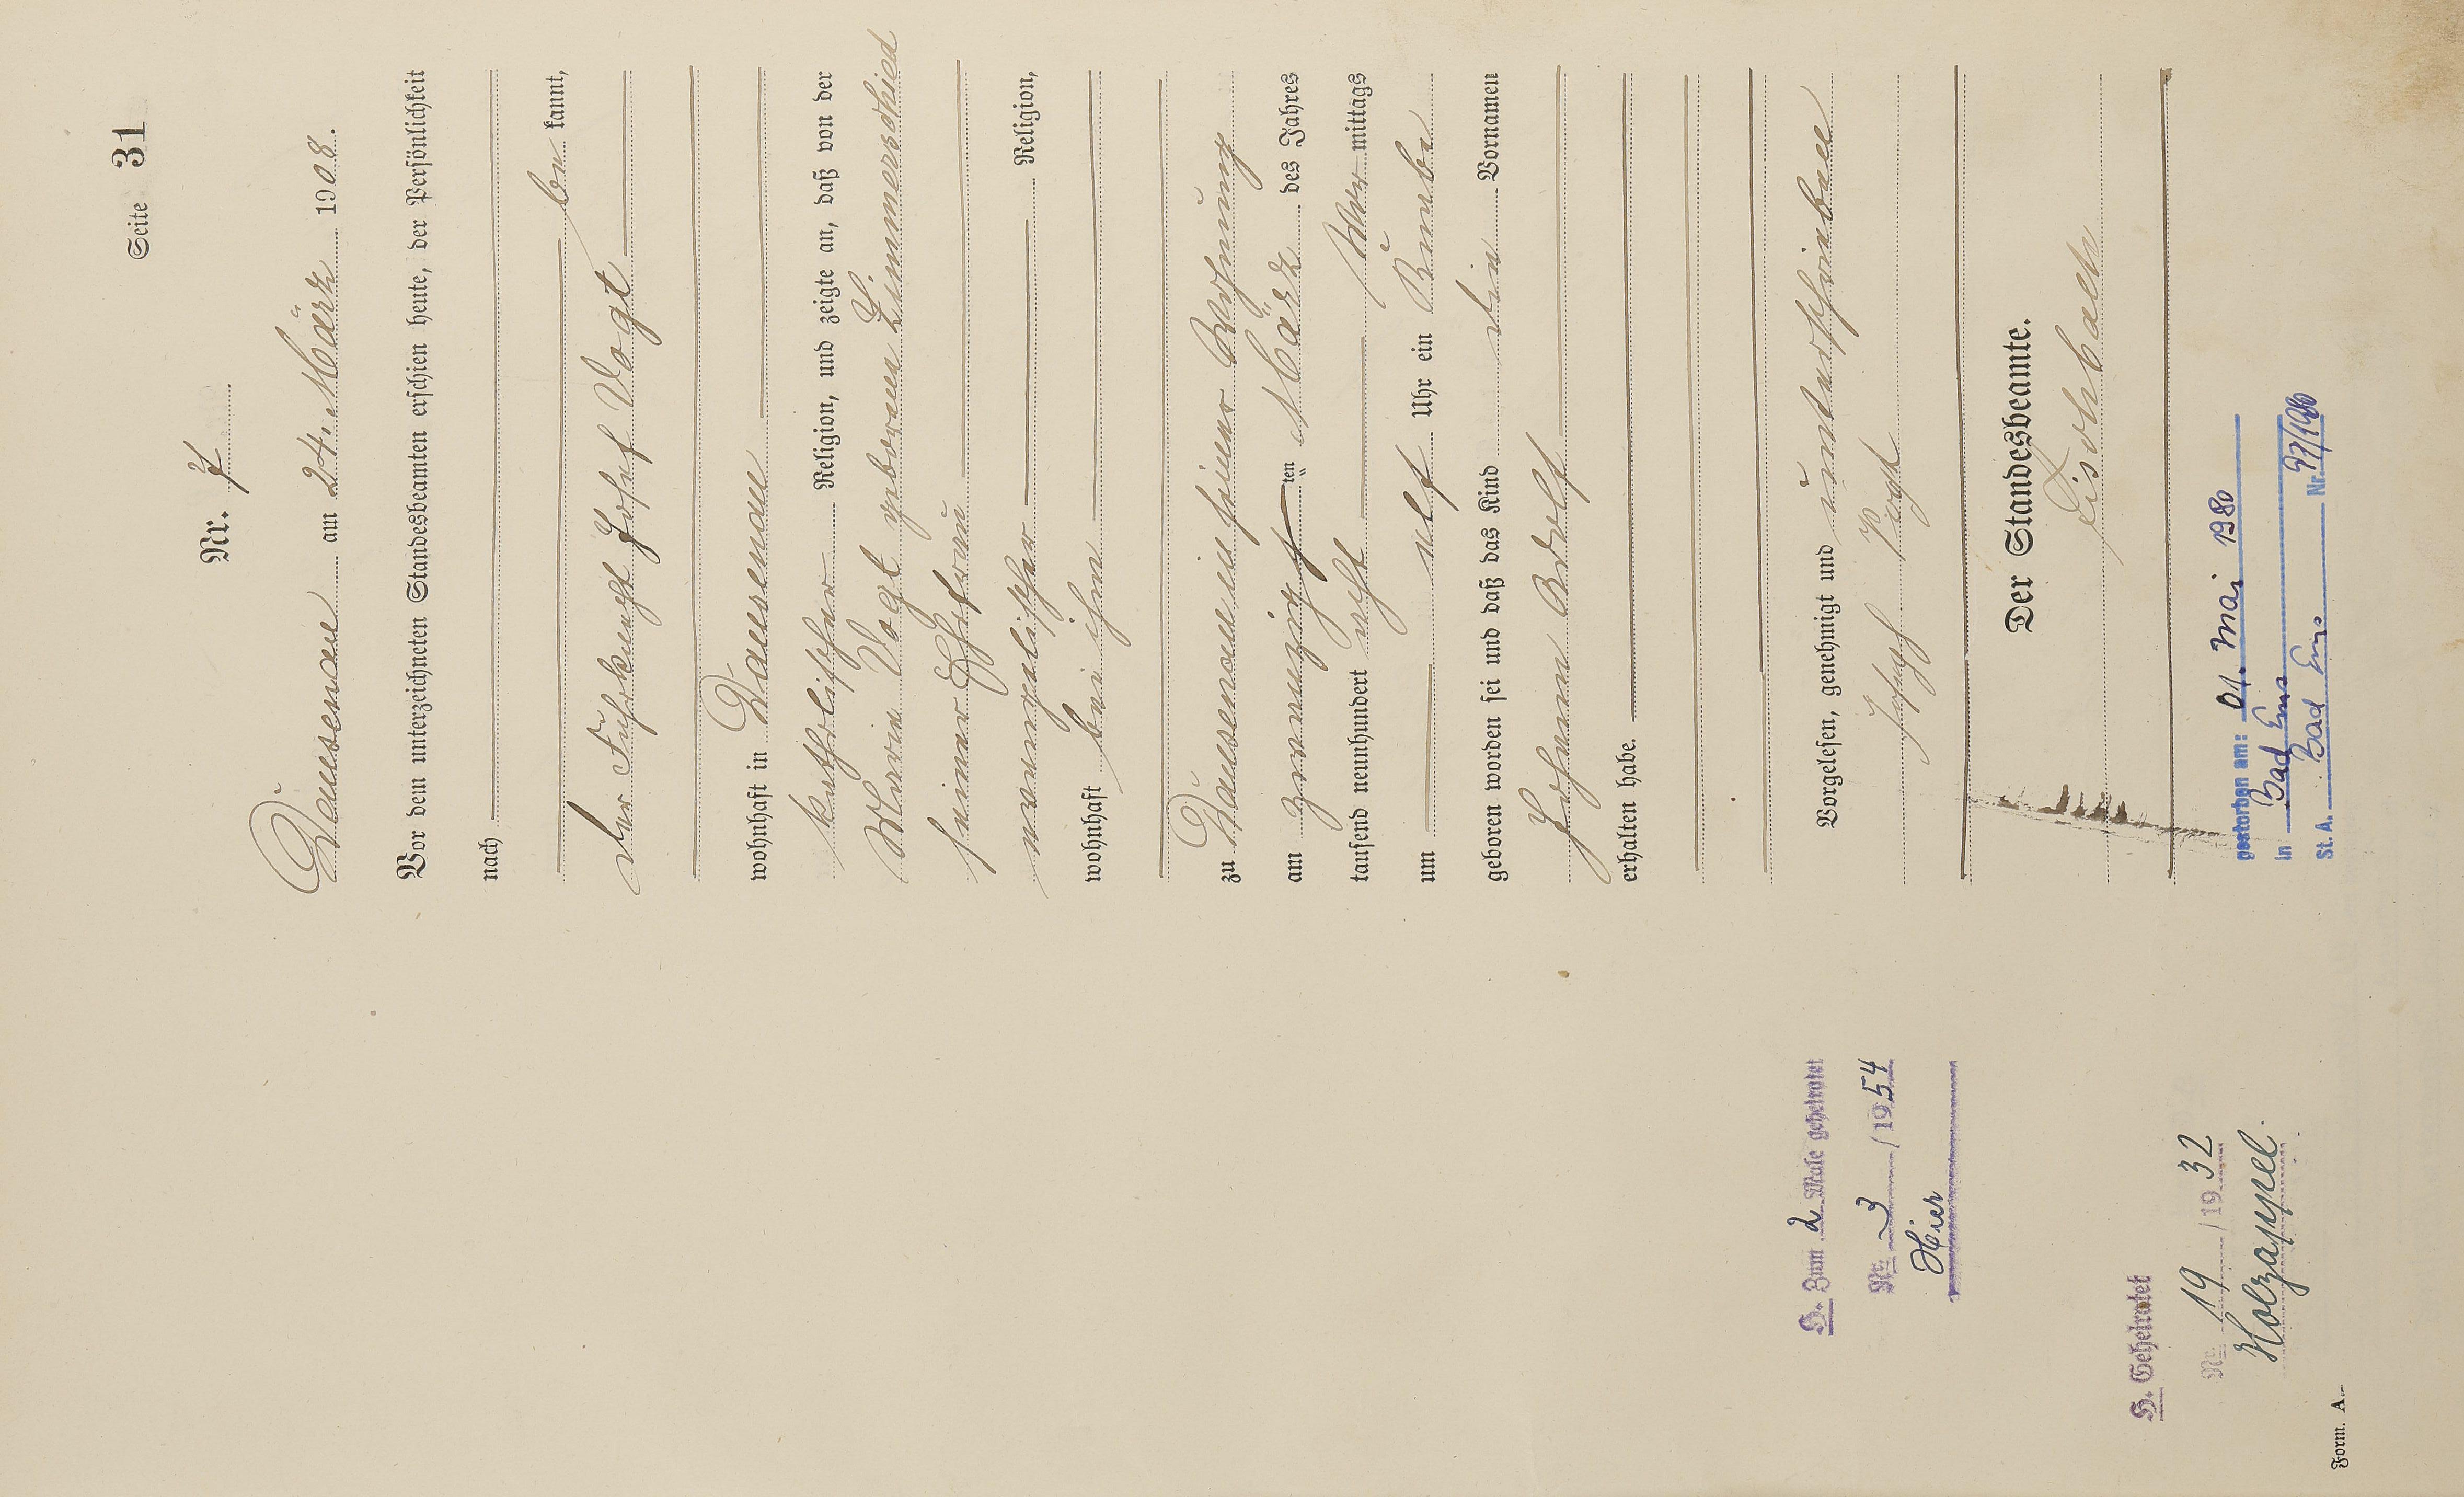 Seite 31
Nr. 7
Dausenau am 24. März 1908.
Vor dem unterzeichneten Standesbeamten erschien heute, der Persönlichkeit
nach
be kannt,
der Fuhrknecht Josef Vogt
wohnhaft in Dausenau
katholischer Religion, und zeigte an, daß von der
Maria Vogt geborene Zimmerschied
seiner Ehefrau
evangelischer Religion,
wohnhaft bei ihm
zu Dausenau in seiner Wohnung
am zwanzigsten März des Jahres
tausend neunhundert acht Vor mittags
um elf Uhr ein Knabe
geboren worden sei und daß das Kind die Vornamen
Johann Adolf
erhalten habe.
Vorgelesen, genehmigt und unterschrieben
Joseph Vogt
Der Standesbeamte.
gestorben am: 01. Mai 1980
in Bad Ems
St. A. Bad Ems Nr. 97/1980
H. Zum 2 Male geheiratet
Nr. 3 / 1954
Hier
H. Geheiratet
Nr. 19 / 1932
Holzappel.
Form. A.